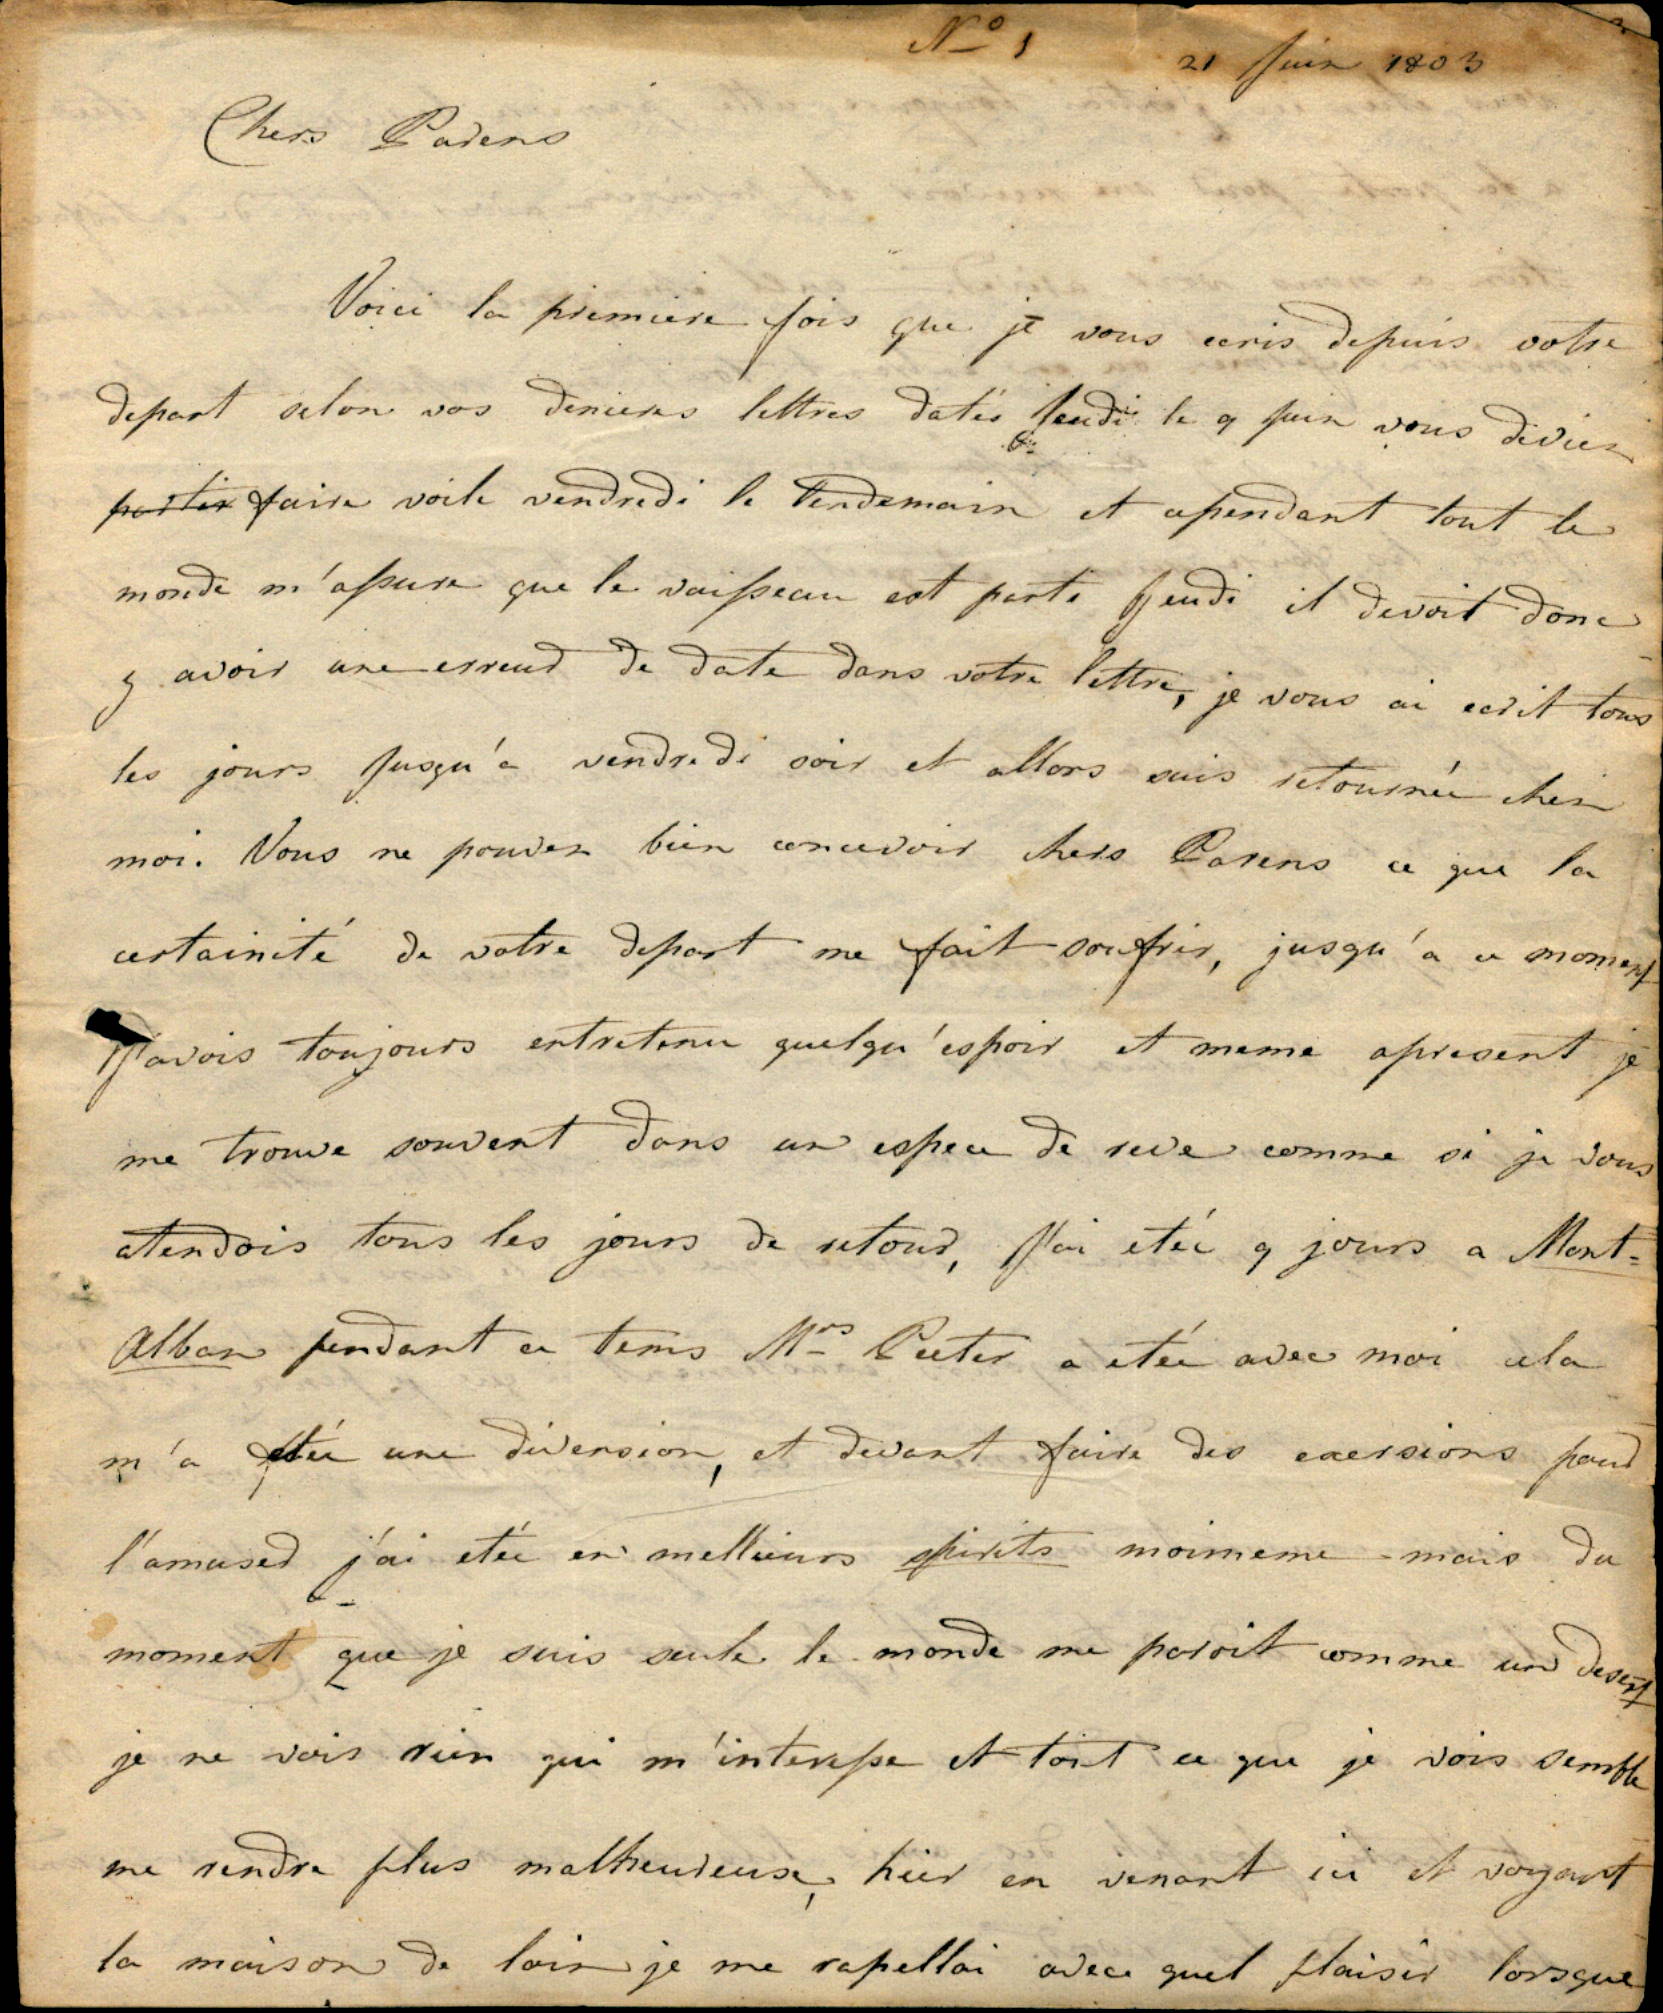 N° 1
21 Juin 1803
Chers Parens
Voici la premiere fois que je vous ecris depuis votre
depart selon vos denieres lettres datés Jeudi le 9 Juin vous deviez
partir faire voile vendredi le lendemain et cependant tout le
monde m'assure que le vaisseau est parti Jeudi il devoit donc
y avoir une erreur de date dans votre lettre, je vous ai ecrit tous
les jours Jusqu'a vendredi soir et allors suis retournée chez
moi. Vous ne pouvez bien concevoir chers Parens ce que la
certainité de votre depart me fait soufrir, jusqu'a ce moment
J'avois toujours entretenu quelqu'espoir et meme apresent je
me trouve souvent dans un espece de reve comme si je vous
atendois tous les jours de retour, J'ai etée 9 jours a Mont-
Alban pendant ce tems Mrs Peeter a etée avec moi cela
m'a etée une diversion, et devant faire des exersions pour
l'amuser j'ai etée en mellieurs spirits moimeme mais du
moment que je suis seule le monde me paroit comme un desert
je ne vois rien qui m'interesse et tout ce que je vois semble
me rendre plus malheureuse, hier en venant ici et voyant
la maison de loin je me rapellai avec quel plaisir lorsque